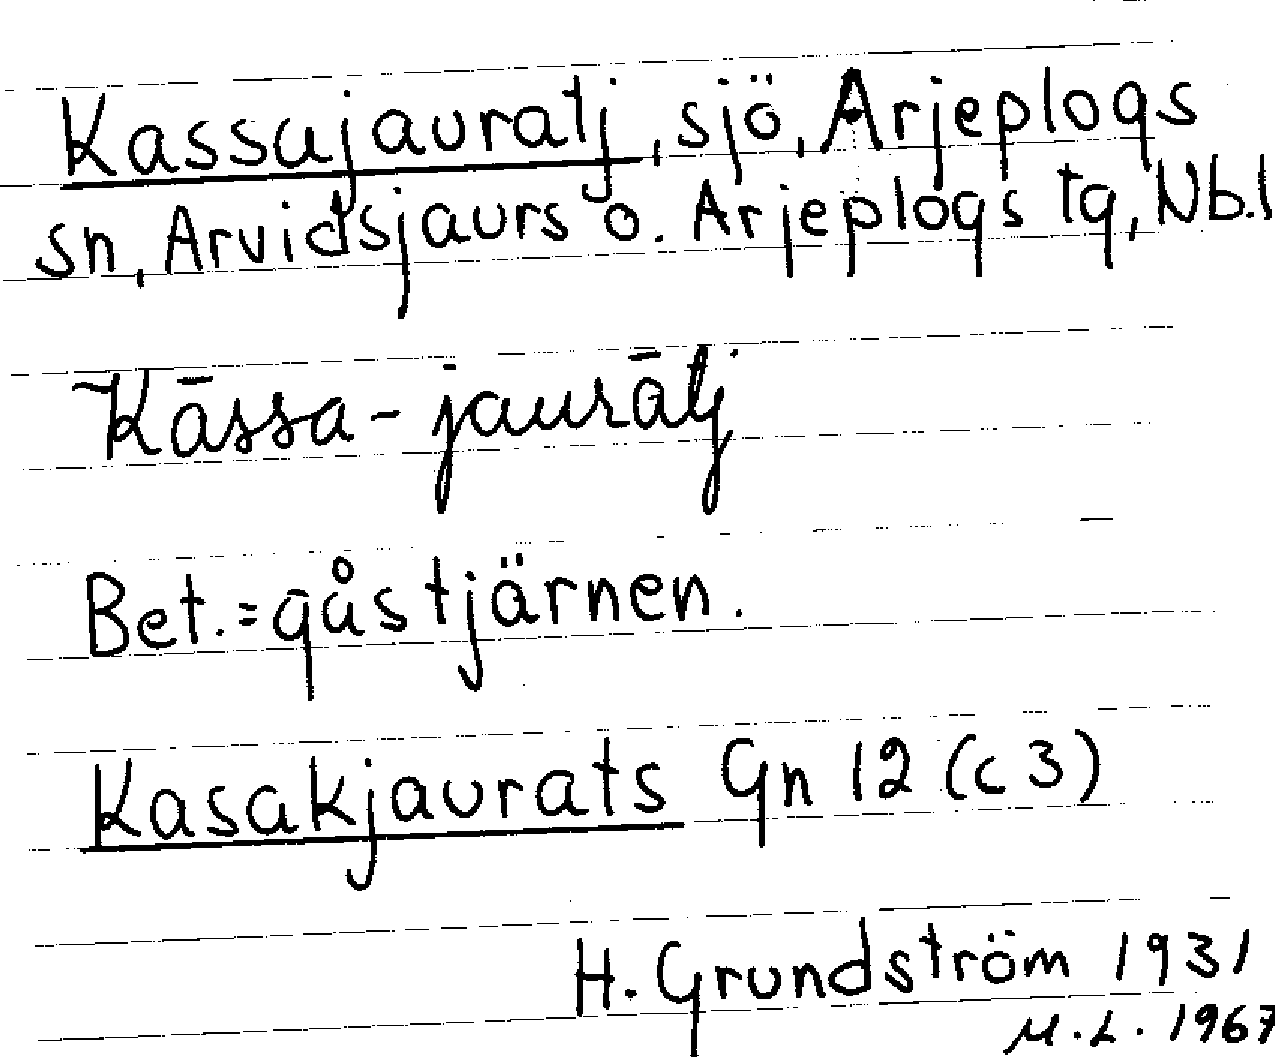 Kassujauratj, sjö, Arjeplogs
sn, Arvidsjaurs o. Arjeplogs tg, Nb.l
Kās̄sa-jaurātj
Bet. = gåstjärnen.
Kasakjaurats Gn 12 (c 3)
H. Grundström 1931
M.L. 1967